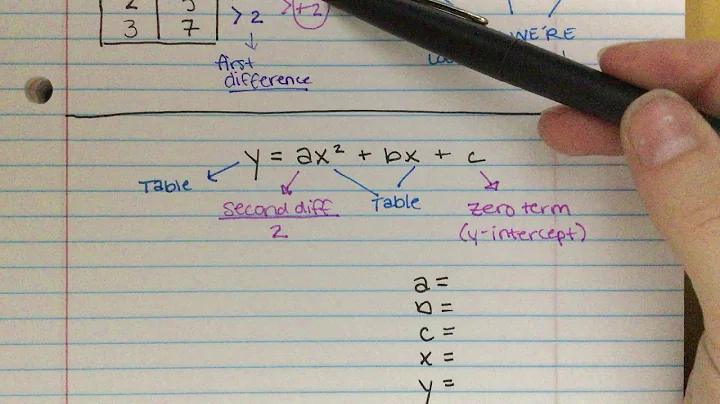 2
3 7
> 2
> +2
WE'RE
first
difference
y = ax² + bx + c
Table
second diff
2
Table
zero term
(y-intercept)
a =
b =
c =
x =
y =